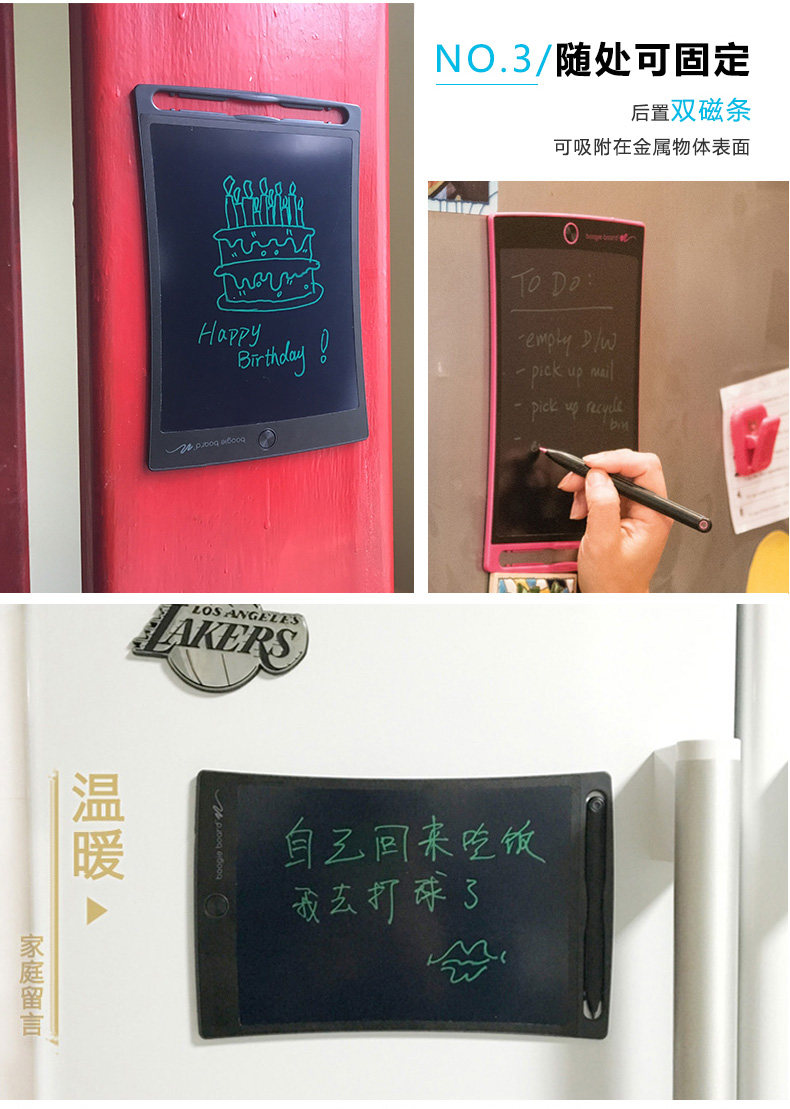 NO.3/随处可固定
后置双磁条
可吸附在金属物体表面
Happy
Birthday!
boogie board
boogie board
TO DO:
-empty D/W
- pick up mail
- pick up recycle
bin
-
LOS ANGELES
LAKERS
温暖
家庭留言
boogie board
自己回来吃饭
我去打球了